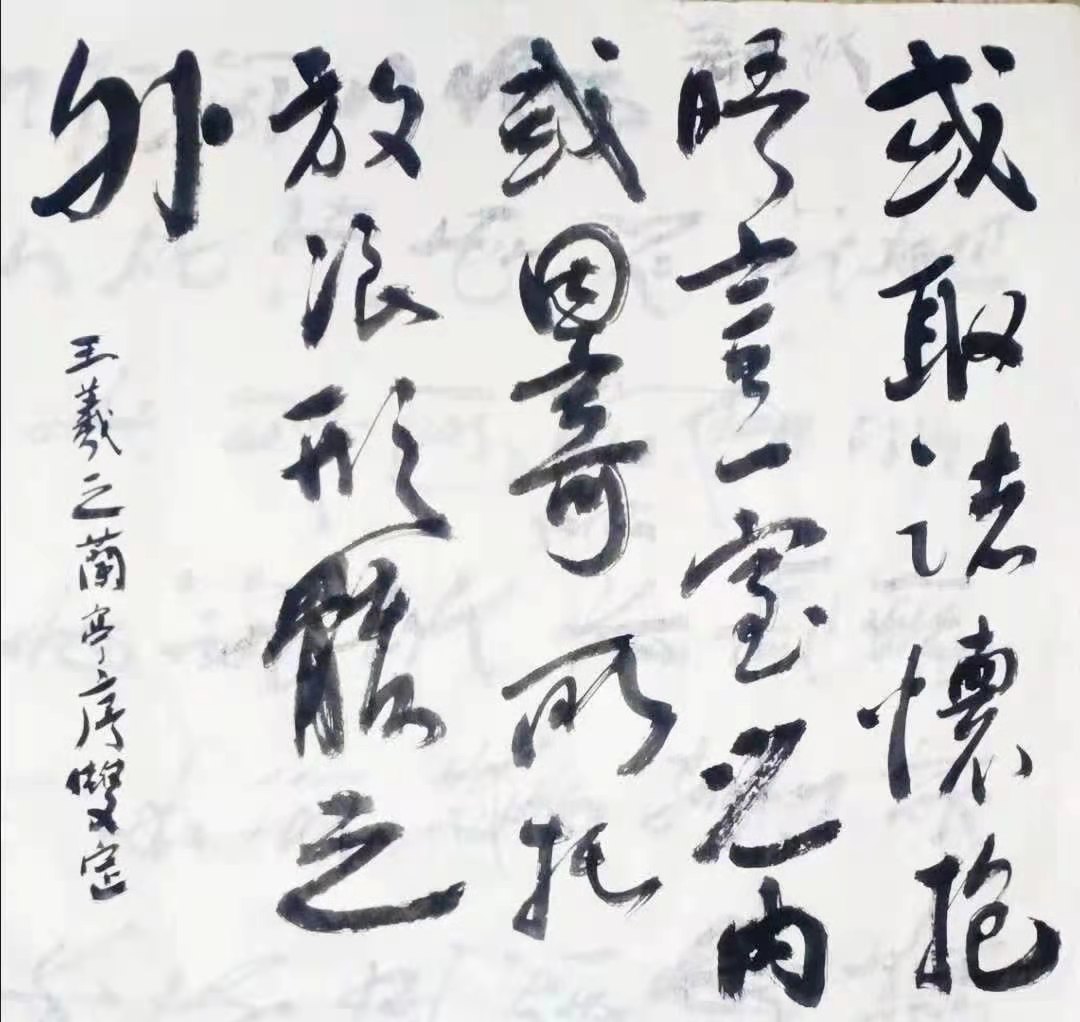 或取诸懷抱
晤言一室之内
或因寄所托
放浪形骸之
外
王羲之蘭亭序雙定